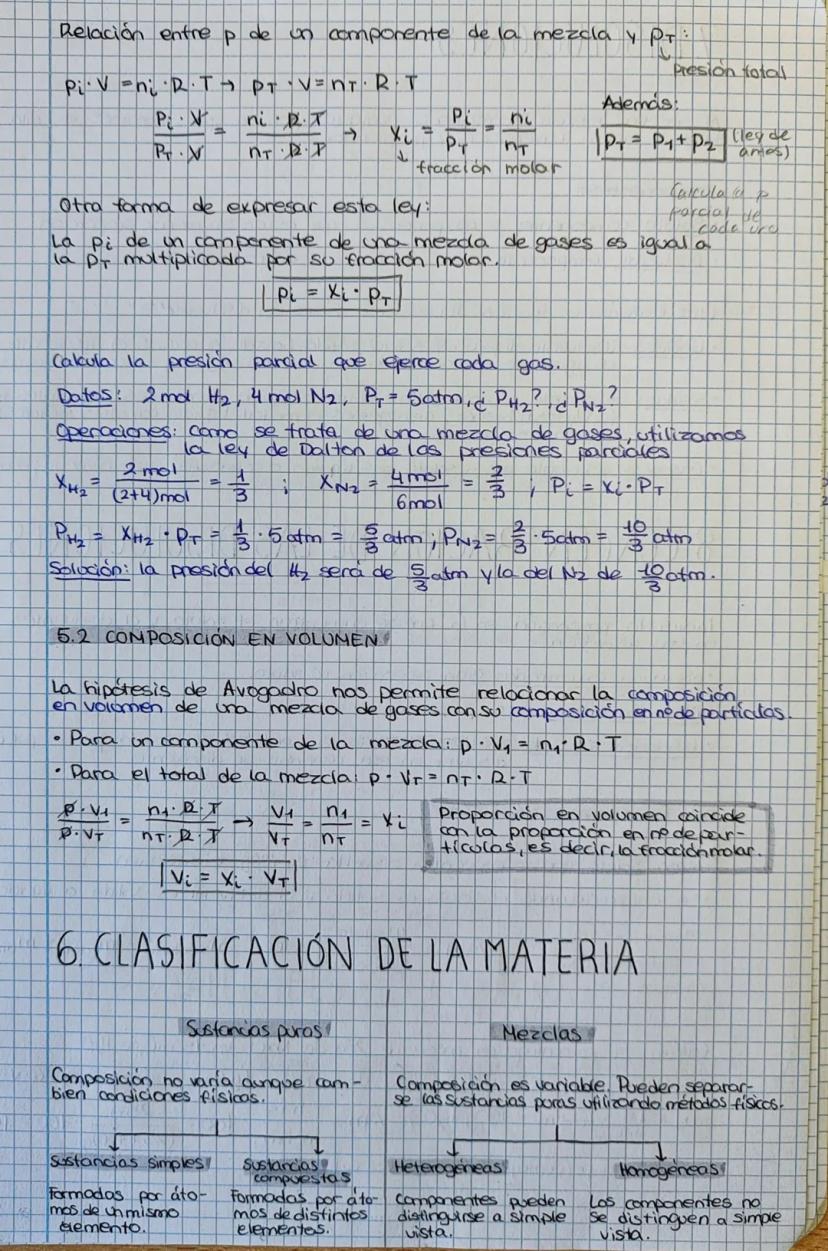 Relación entre p de un componente de la mezcla y pT:
↳ presión total
pi · V = ni · R · T → pT · V = nT · R · T
Además:
Pi · V / PT · V = ni · R · T / nT · R · T → xi = Pi / PT = ni / nT
|pT = p1 + p2| (ley de antes)
↓ fracción molar
Calcula a p parcial de cada uno
Otra forma de expresar esta ley:
La pi de un componente de una mezcla de gases es igual a
la pT multiplicada por su fracción molar.
|pi = xi · pT|
Calcula la presión parcial que ejerce cada gas.
Datos: 2 mol H2, 4 mol N2, PT = 5 atm, ¿PH2?, ¿PN2?
Operaciones: como se trata de una mezcla de gases, utilizamos
la ley de Dalton de las presiones parciales
XH2 = 2 mol / (2+4) mol = 1/3 ; XN2 = 4 mol / 6 mol = 2/3 ; Pi = xi · PT
PH2 = XH2 · PT = 1/3 · 5 atm = 5/3 atm ; PN2 = 2/3 · 5 atm = 10/3 atm
Solución: la presión del H2 será de 5/3 atm y la del N2 de 10/3 atm.
5.2 COMPOSICIÓN EN VOLUMEN
La hipótesis de Avogadro nos permite relacionar la composición
en volumen de una mezcla de gases con su composición en nº de partículas.
· Para un componente de la mezcla: p · V1 = n1 · R · T
· Para el total de la mezcla: p · VT = nT · R · T
p · V1 / p · VT = n1 · R · T / nT · R · T → V1 / VT = n1 / nT = xi
Proporción en volumen coincide
con la proporción en nº de par-
tículas, es decir, la fracción molar.
|Vi = xi · VT|
6. CLASIFICACIÓN DE LA MATERIA
Sustancias puras
Composición no varía aunque cam-
bien condiciones físicas.
Sustancias simples
Formadas por áto-
mos de un mismo
elemento.
Sustancias
compuestas
Formadas por áto-
mos de distintos
elementos.
Mezclas
Composición es variable. Pueden separar-
se las sustancias puras utilizando métodos físicos.
Heterogéneas
Componentes pueden
distinguirse a simple
vista.
Homogéneas
Los componentes no
se distinguen a simple
vista.